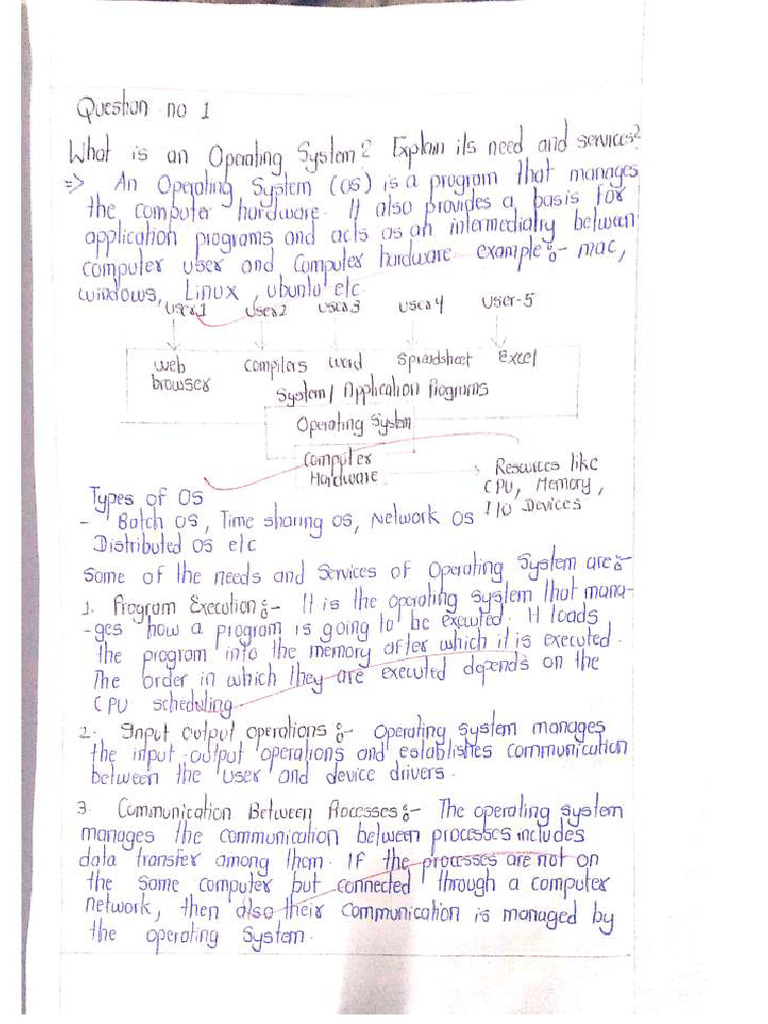 Question no 1
What is an Operating System? Explain its need and services?
=> An Operating System (OS) is a program that manages
the computer hardware. It also provides a basis for
application programs and acts as an intermediatry between
computer user and Computer hardware example:- mac,
windows, Linux, ubuntu etc
User1 User2 User3 User4 User-5
Web browser Compilers Word Spreadsheet Excel
System/Application Programs
Operating System
Computer
Hardware
Resources like
CPU, Memory,
I/O Devices
Types of OS
- Batch OS, Time sharing OS, Network OS
Distributed OS etc
Some of the needs and Services of Operating System are:-
1. Program Execution:- It is the operating system that mana-
-ges how a program is going to be executed. It loads
the program into the memory after which it is executed.
The order in which they are executed depends on the
CPU scheduling
2. Input output operations:- Operating System manages
the input-output operations and establishes communication
between the user and device drivers.
3. Communication Between Processes:- The operating system
manages the communication between processes includes
data transfer among them. If the processes are not on
the same computer but connected through a computer
network, then also their communication is managed by
the operating System.